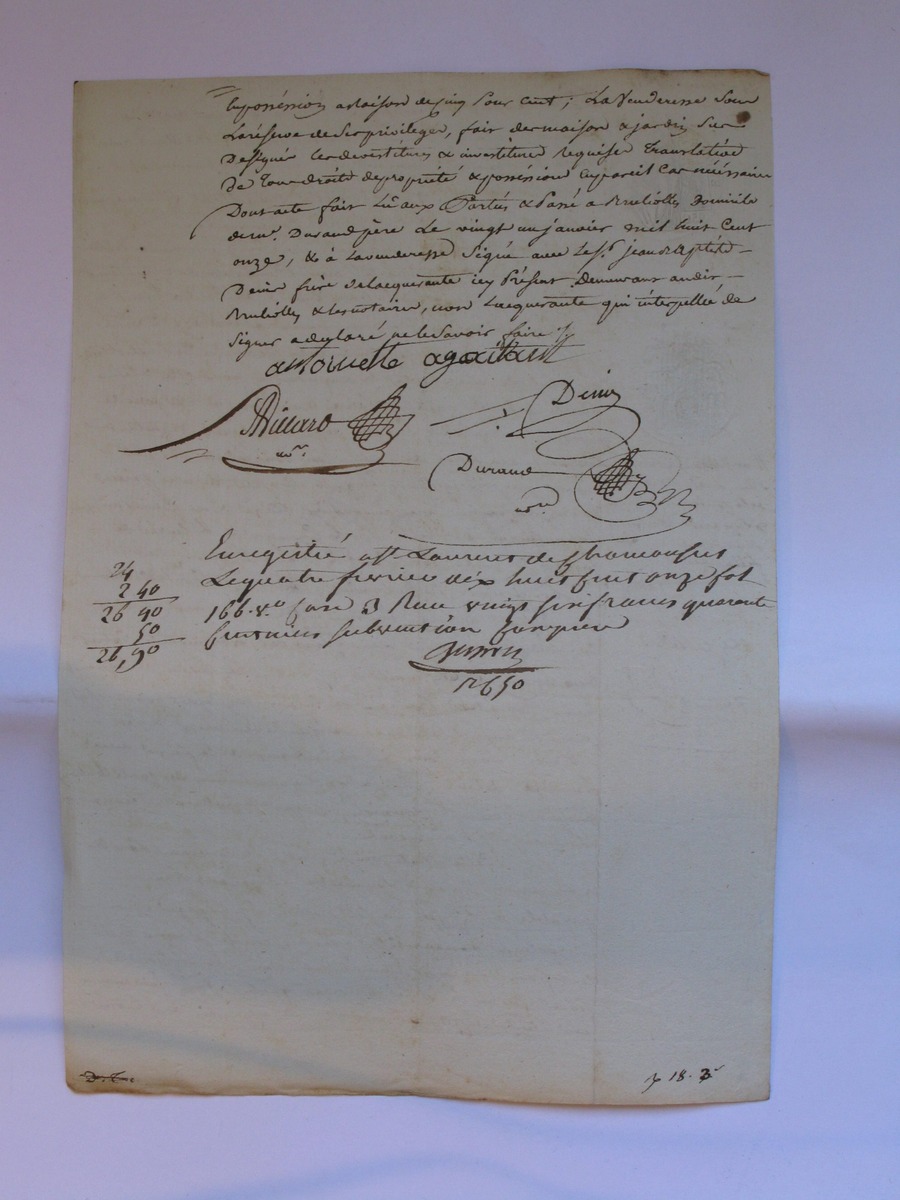 En possession a Raison de cinq pour cent; La Venderesse sous
La réserve de ses privileges, fait des maison & jardin sus
Designés les devestitures & investitures Requises Translative
De Tous droits de propriété & possession en pareil Cas nécessaires
Dont acte fait Lu aux Parties & Passé a Brulioles Domicile
de mr. Durand père Le vingt un janvier mil huit Cent
onze, & à La venderesse Signé avec Le sr. jean Baptiste
Denis frère de Lacquerante icy Présent Demeurant audit
Brulioles & les notaires, non Lacquerante qui interpellée de
Signer a declaré ne le Savoir faire
antoinette agaillard
Denis
Durand
nre
Enregistré a st. Laurent de Chamousset
Le quatre fevrier dix huit cent onze fol
166 vo. Case 3 Reçu vingt six francs quarante
centimes subvention comprise
24
2 40
26 40
50
26,90
2650
18.